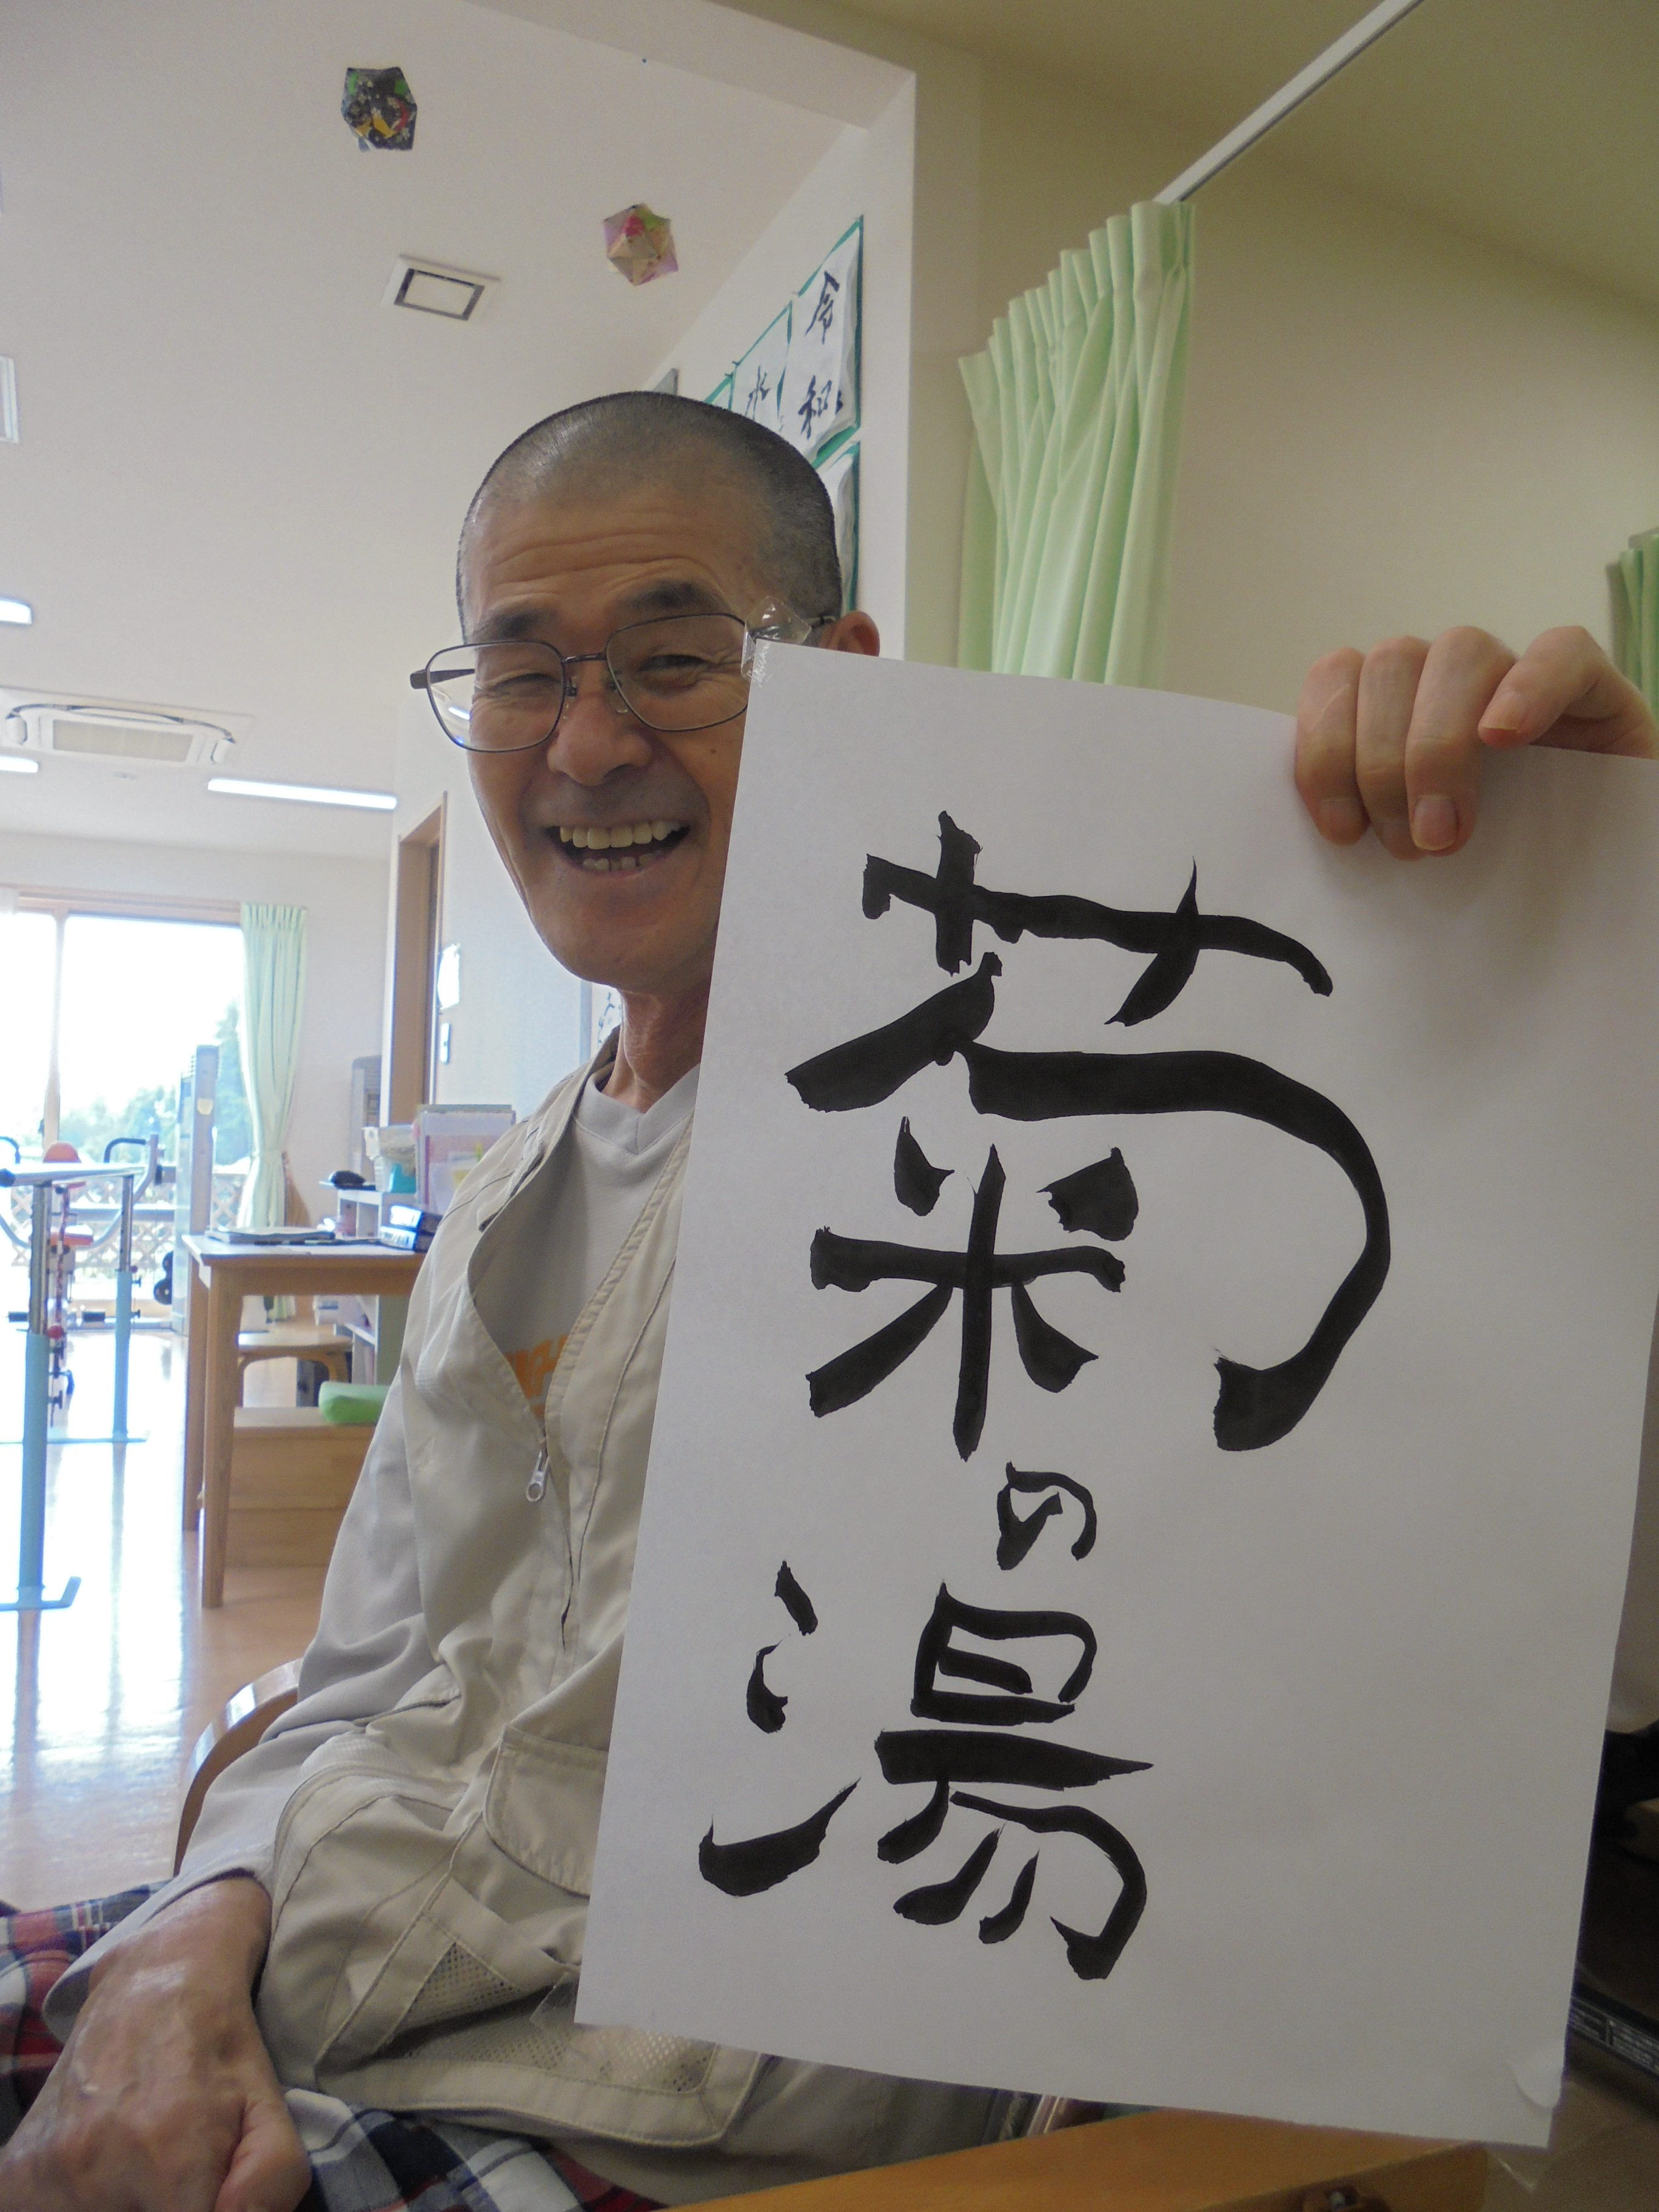 菊の湯
令和
水